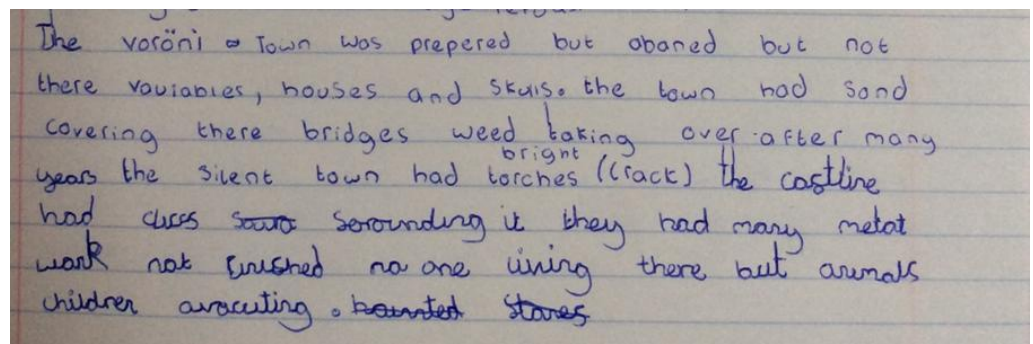 The voröni Town was prepered but abaned but not
there vauiables, houses and skuls. the town had sand
covering there bridges weed taking over after many
years the silent town had bright torches (crack) the castline
had clices serounding it they had many metal
work not finished no one living there but animals
children avacuting.